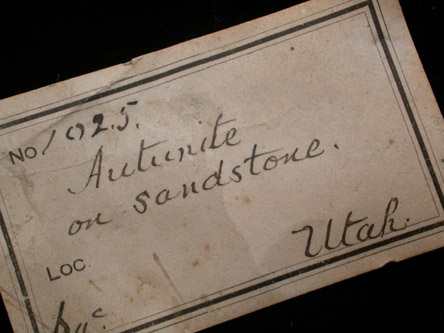 NO. 1025.
Autunite
on sandstone.
LOC Utah.